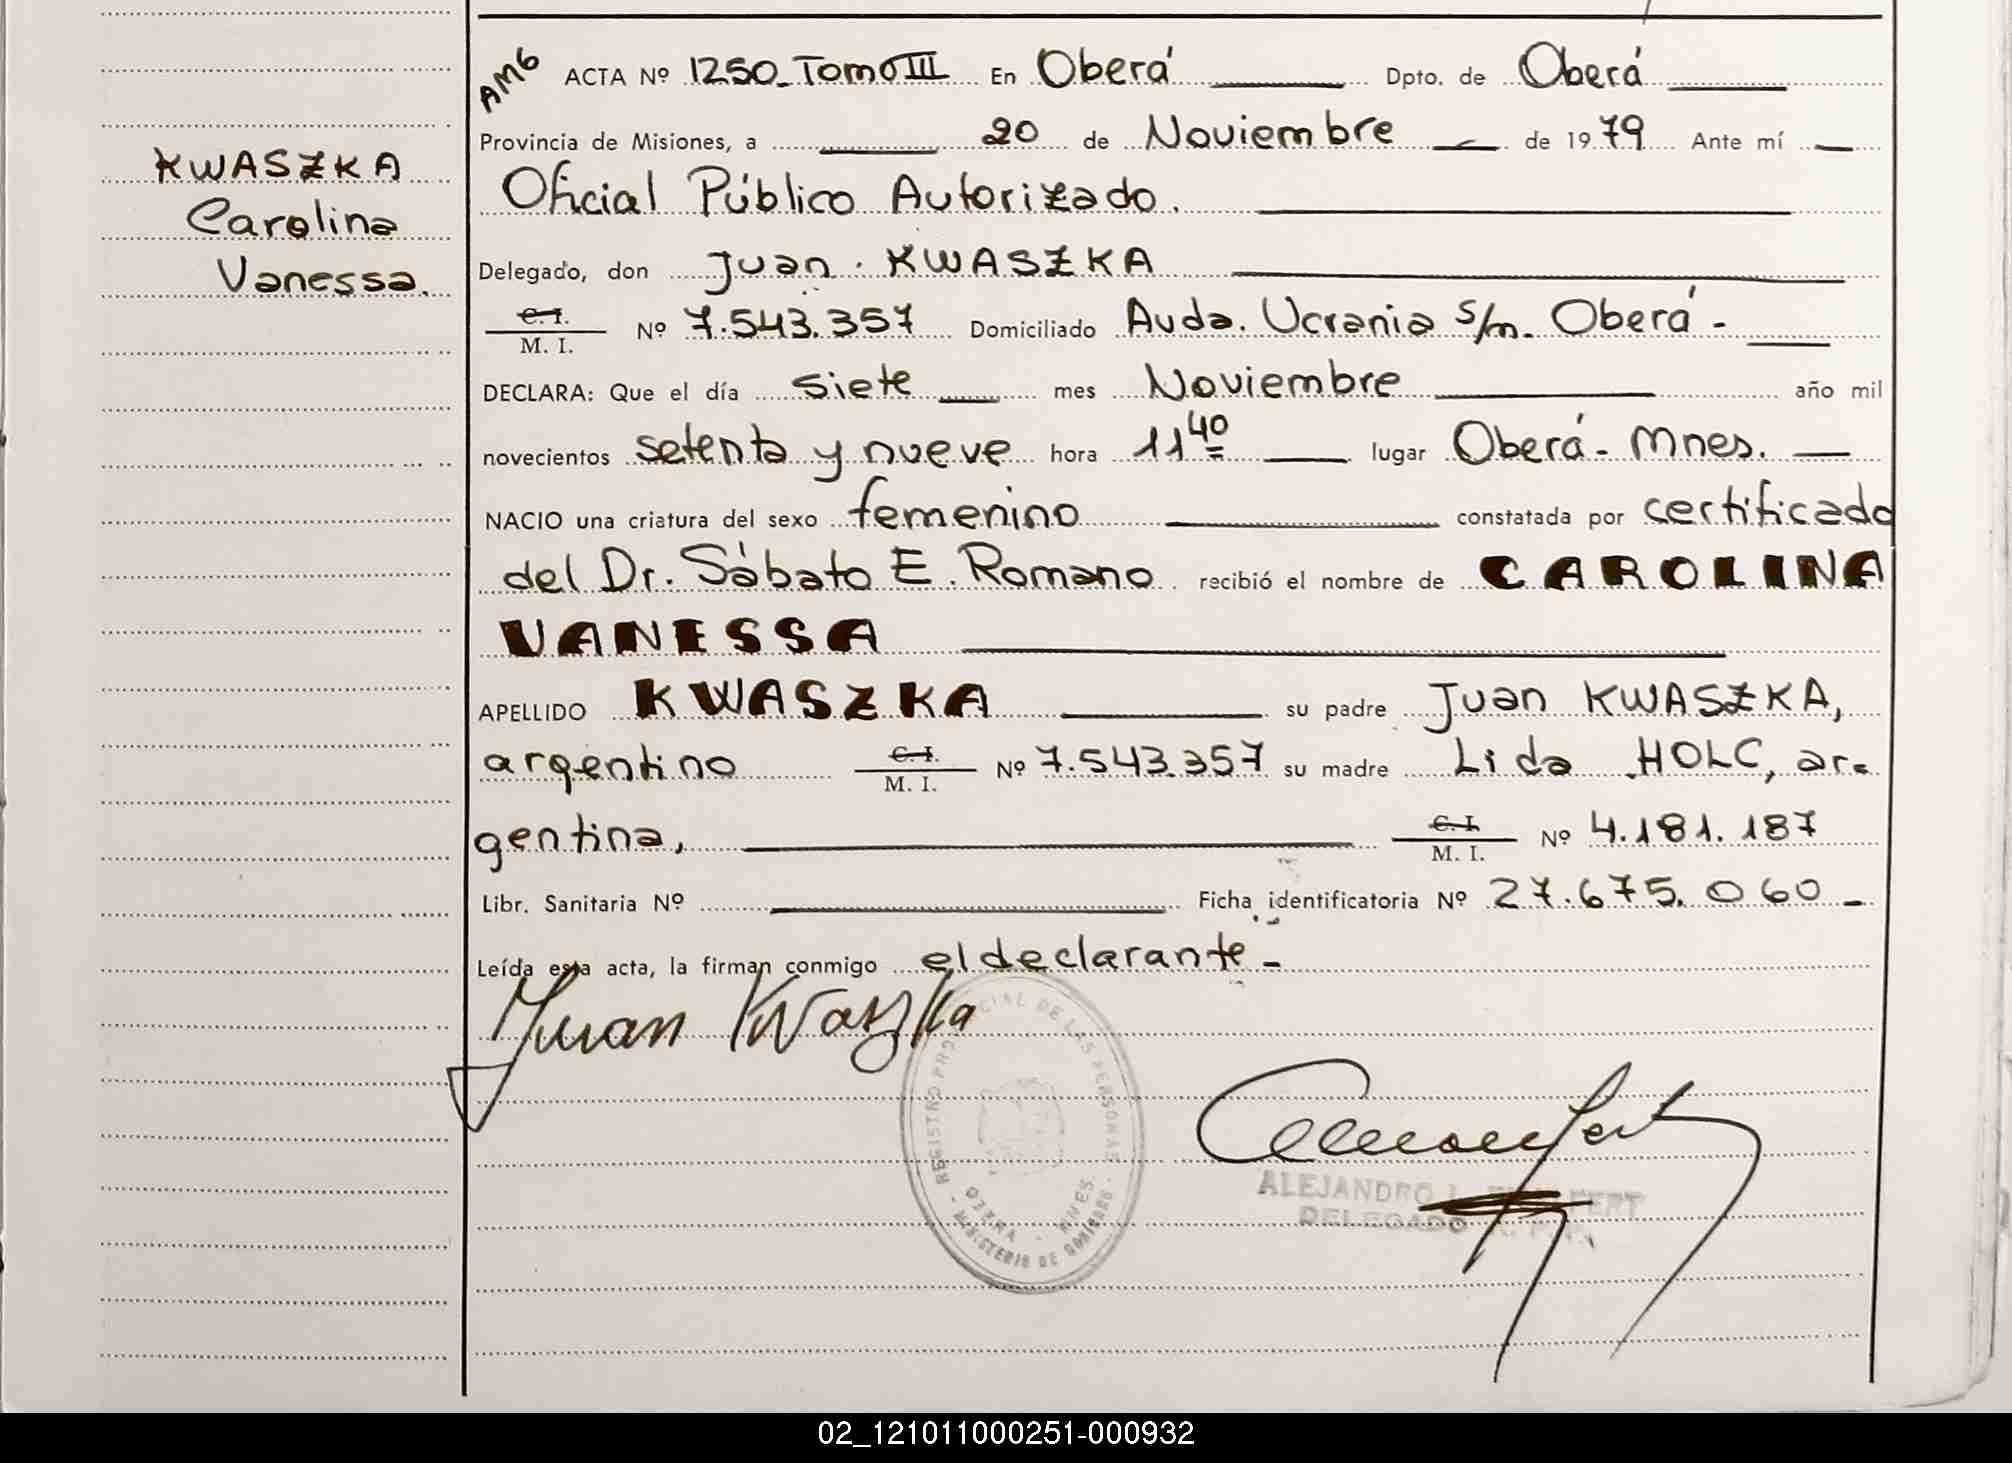 AMG
ACTA Nº 1250 Tomo III En Oberá Dpto. de Oberá
Provincia de Misiones, a 20 de Noviembre de 1979 Ante mí
Oficial Público Autorizado.
KWASZKA
Carolina
Vanessa.
Delegado, don Juan KWASZKA
C. I.
M. I. Nº 7.543.357 Domiciliado Avda. Ucrania s/n. Oberá -
DECLARA: Que el día siete mes Noviembre año mil
novecientos setenta y nueve hora 11 40 lugar Oberá - Mnes.
NACIO una criatura del sexo femenino constatada por certificado
del Dr. Sábato E. Romano recibió el nombre de CAROLINA
VANESSA
APELLIDO KWASZKA su padre Juan KWASZKA,
argentino C. I. M. I. Nº 7.543.357 su madre Lida HOLC, ar-
gentina, C. I. M. I. Nº 4.181.187
Libr. Sanitaria Nº Ficha identificatoria Nº 27.675.060 -
Leída esta acta, la firman conmigo el declarante -
Juan Kwaszka
REGISTRO PROVINCIAL DE LAS PERSONAS
OBERA - MNES.
MINISTERIO DE GOBIERNO
ALEJANDRO L.
DELEGADO
02_121011000251-000932